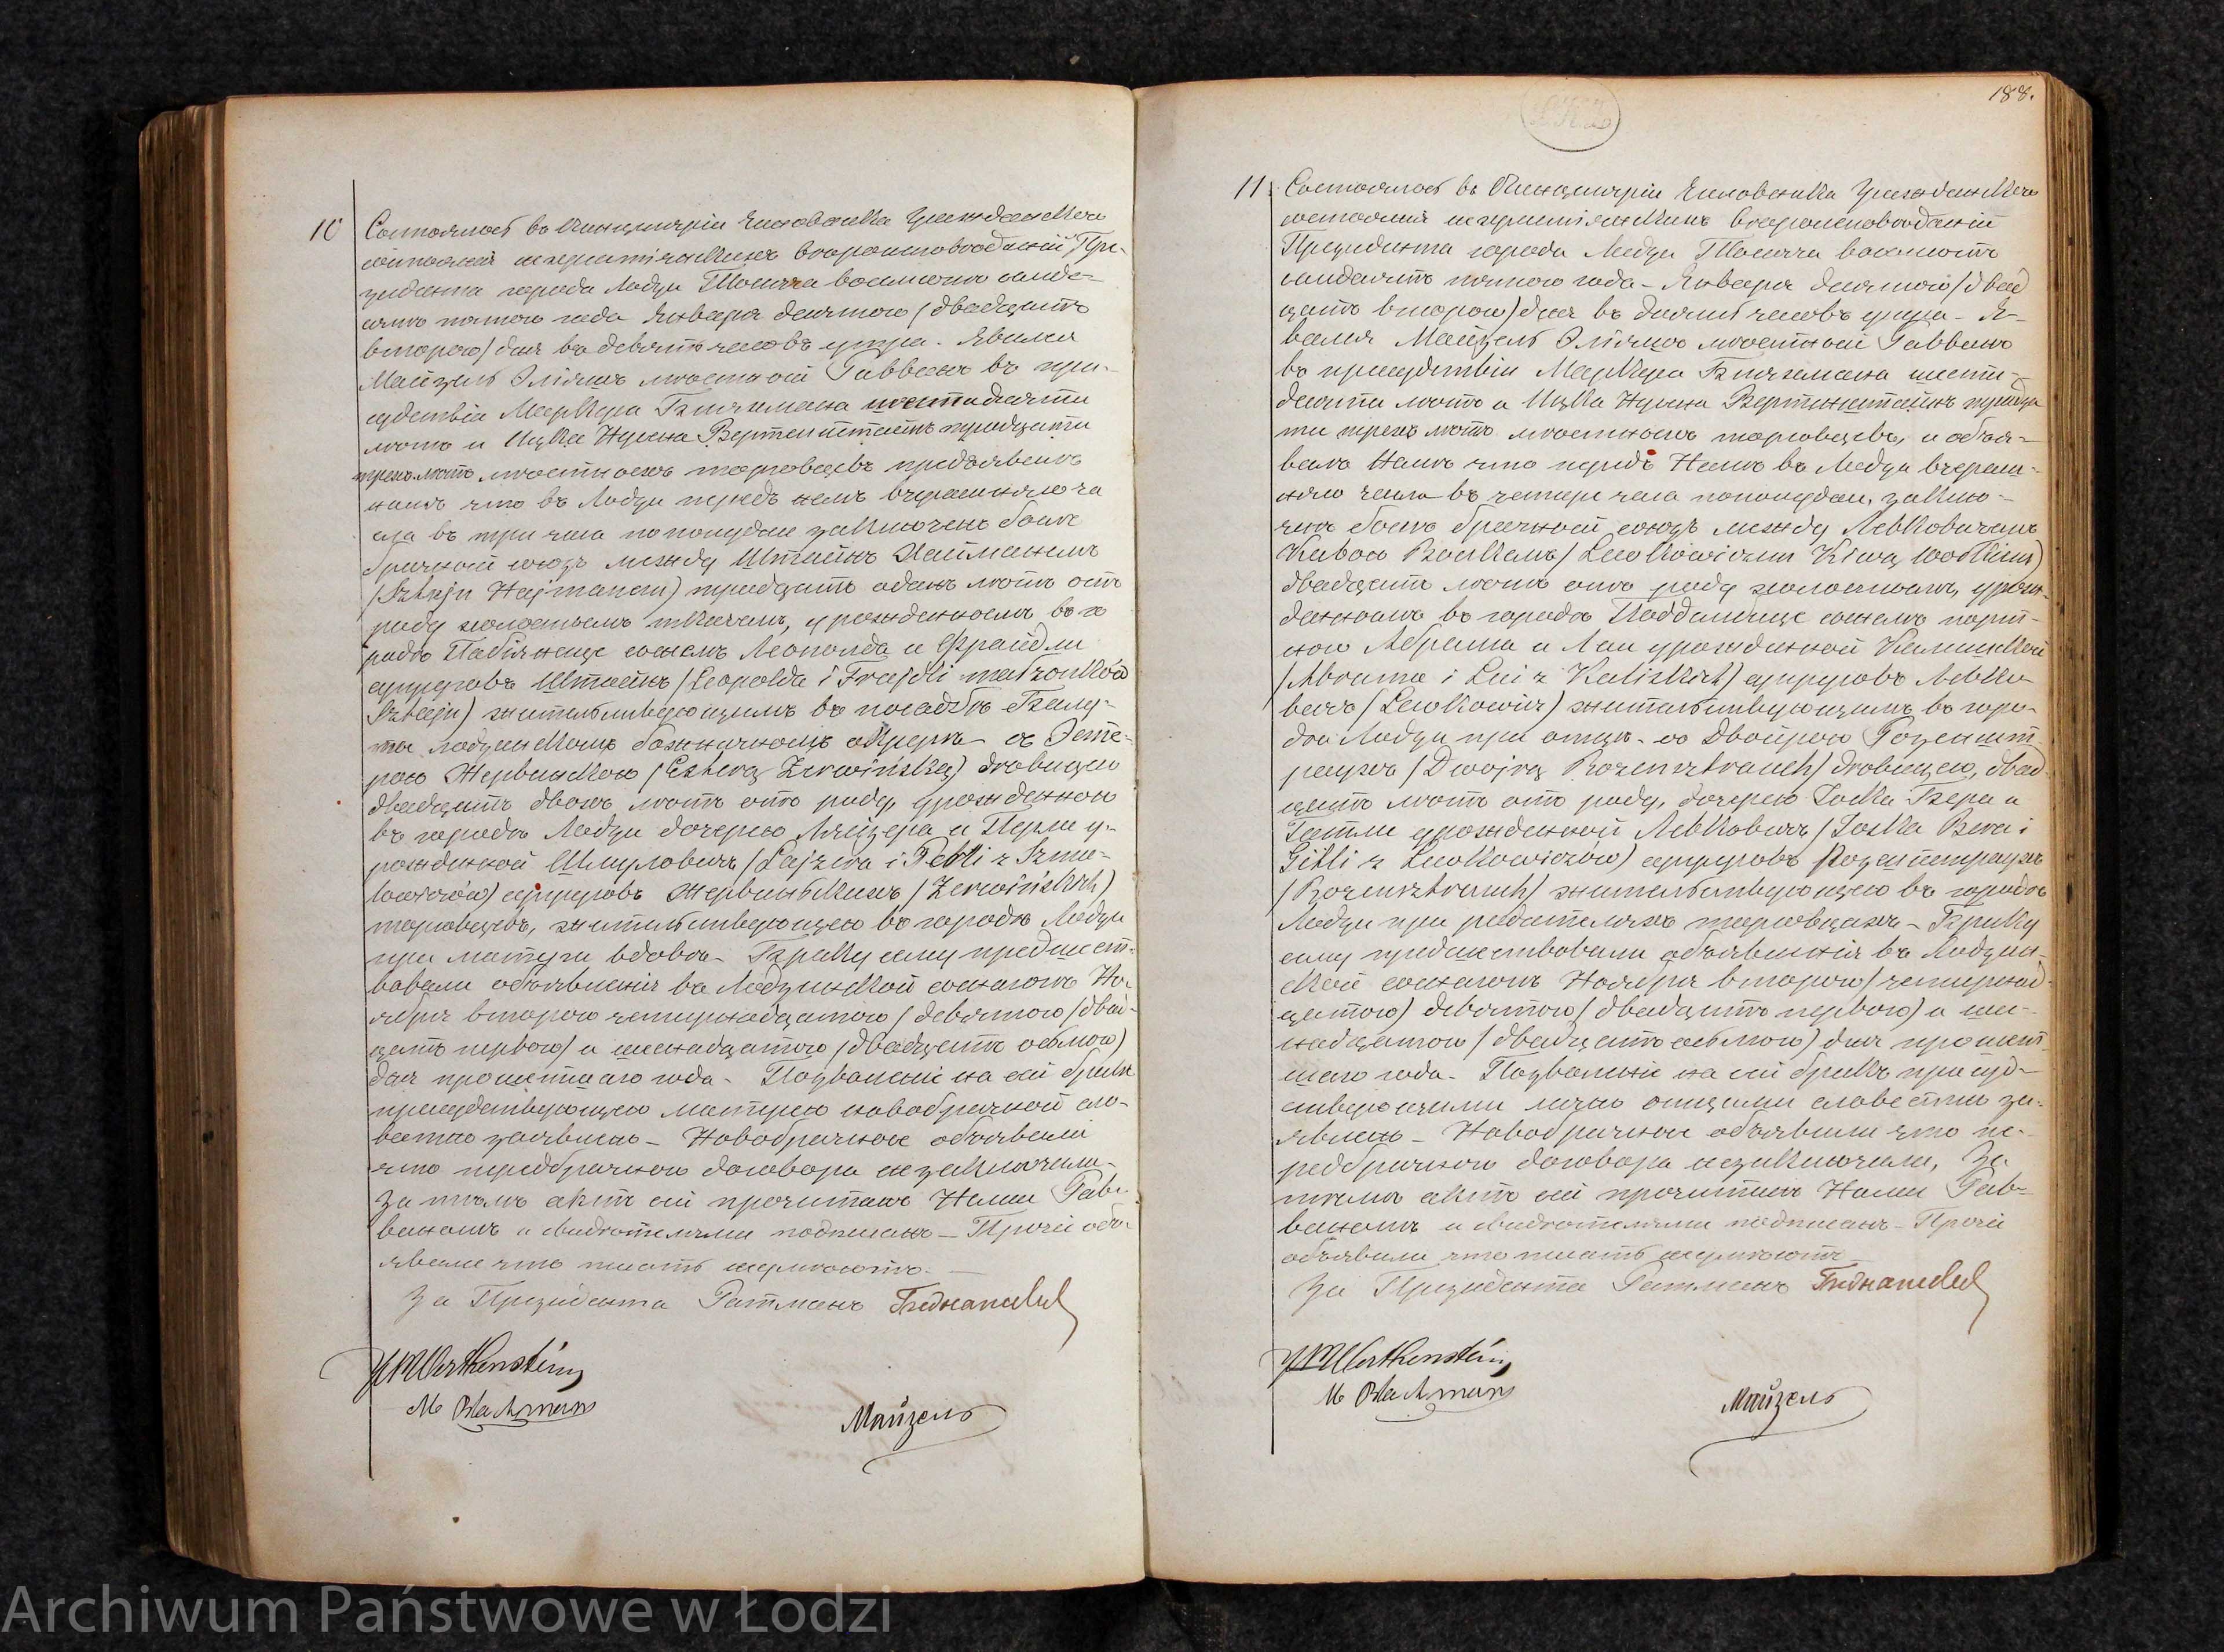 188.
10
Состоялось въ Канцеляріи Чиновника Гражданскаго
состоянія нехристіанскихъ вѣроисповѣданій Пре-
зидента города Лодзи Тысяча восемьсотъ семьде-
сятъ пятаго года Января десятаго /двадцать
втораго/ дня въ девять часовъ утра. Явился
Майзель Эліяшъ мѣстный Раввинъ въ при-
сутствіи Маркуса шестидесяти
лѣтъ и Ицка Нусена Вертенштейнъ тридцати
трехъ лѣтъ мѣстныхъ торговцевъ предъявилъ
намъ что въ Лодзи передъ нимъ вчерашняго чи
сла въ три часа пополудни заключенъ былъ
брачный союзъ между Штайнъ Хайманомъ
/Sztajn Hajmanem) тридцать одинъ лѣтъ отъ
роду холостымъ ткачемъ, урожденнымъ въ го
родѣ Пабіянице сыномъ Леопольда и Фрайдли
супруговъ Штайнъ /Leopolda i Frajdli małżonków
Sztajn) жительствующимъ въ посадѣ Балу-
ты лодзинскому божничному округѣ – съ Эсте-
рою Жервинскою /Esterą Żerwińską) дѣвицею
двадцать двухъ лѣтъ отъ роду, урожденною
въ городѣ Лодзи дочерью Лейзера и Перли у-
рожденной Шмуловичъ /Lajzera i Perli z Szmu-
lowiczów) супруговъ Жервинскихъ /Żerwińskich)
торговцевъ, жительствующею въ городѣ Лодзи
при матери вдовѣ – Браку сему предшест-
вовали объявленія въ Лодзинской синагогѣ Но-
ября втораго четырнадцатаго / девятаго /двад-
цать перваго/ и шестнадцатаго /двадцать осьмого)
дня прошедшаго года – Позволеніе на сей бракъ
присутствующею матерью новобрачной сло-
весно заявлено – Новобрачные объявили
что предбрачнаго договора не заключали –
За тѣмъ актъ сей прочитанъ Нами Рав-
виномъ и свидѣтелями подписанъ – Прочіе объ-
явили что писать не умѣютъ. –
За Президента Ратманъ
Майзель
11
Состоялось въ Канцеляріи Чиновника Гражданскаго
состоянія нехристіанскихъ вѣроисповѣданій
Президента города Лодзи Тысяча восемьсотъ
семьдесятъ пятаго года – Января десятаго /двад
цать втораго) дня въ десять часовъ утра – Я-
вился Майзель Эліяшъ мѣстный Раввинъ
въ присутствіи Маркуса шести-
десяти лѣтъ и Ицка Нусена Вертенштейнъ тридца
ти трехъ лѣтъ мѣстныхъ торговцевъ, и объя-
вилъ Намъ что передъ Нимъ въ Лодзи вчераш-
няго числа въ четыре часа пополудни, заклю-
ченъ былъ брачный союзъ между Левковичемъ
Кивою Волькемъ /Lewkowiczem Kiwą Wolkiem)
двадцать лѣтъ отъ роду холостымъ, урож-
деннымъ въ городѣ Поддембице сыномъ
Абрама и Лаи урожденной Калинской
/Abrama i Lai z Kaliskich) супруговъ Левко-
вичъ /Lewkowicz) жительствующимъ въ горо-
дѣ Лодзи при отцѣ – съ Двойрою Розеншт-
раухъ /Dwojrą Rozensztrauch/ дѣвицею, двад
цать лѣтъ отъ роду, дочерью Іоска Бера и
Гитли урожденной Левковичъ /Joska Bera i
Gitli z Lewkowiczów) супруговъ Розенштраухъ
/Rozensztrauch/ жительствующею въ городѣ
Лодзи при родителяхъ торговцахъ – Браку
сему предшествовали объявленія въ Лодзин-
ской синагогѣ Ноября втораго /четырнад-
цатаго) девятаго /двадцать перваго) и шес-
надцатаго /двадцать осьмого) дня прошед-
шаго года – Позволеніе на сей бракъ присут-
ствующими лично отцами словесно за-
явлено – Новобрачные объявили что пе-
редбрачнаго договора незаключали, За
тѣмъ актъ сей прочитанъ Нами Рав-
виномъ и свидѣтелями подписанъ – Прочіе
объявили что писать не умѣютъ –
За Президента Ратманъ
Майзель
Archiwum Państwowe w Łodzi